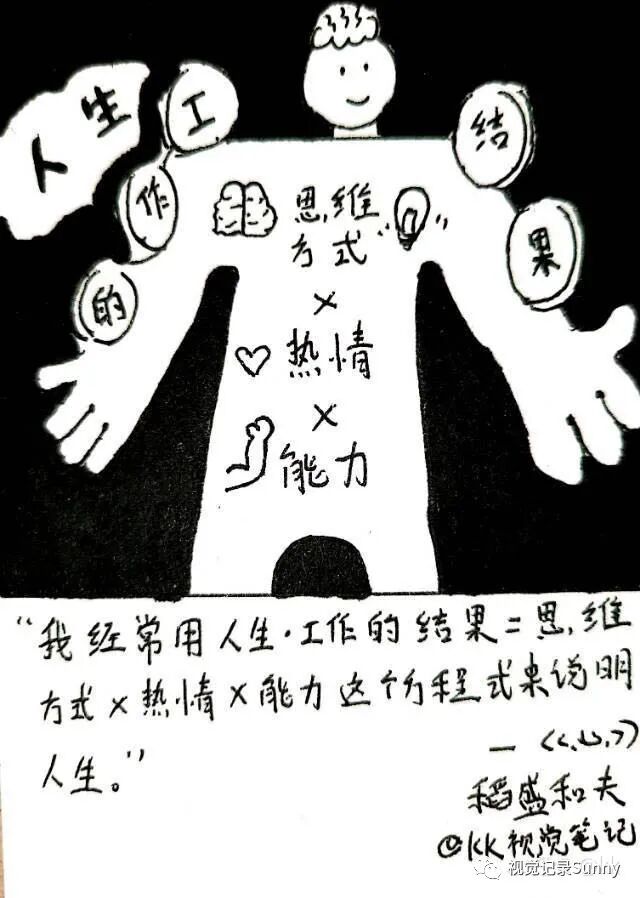 人生
工
作
的
结
果
思维
方式
×
热情
×
能力
"我经常用人生·工作的结果=思维
方式×热情×能力这个方程式来说明
人生。"
—《心》
稻盛和夫
@KK视觉笔记
视觉记录Sunny